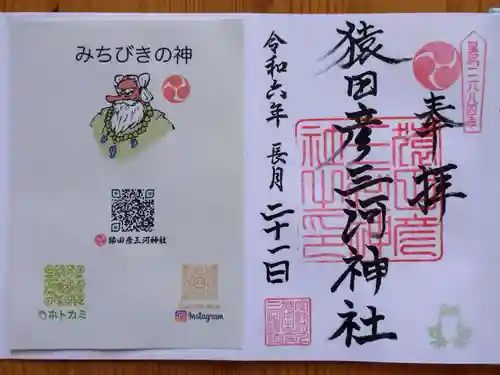 みちびきの神
猿田彦三河神社
ホトカミ
Instagram
奉拝
猿田彦三河神社
令和六年 長月 二十一日